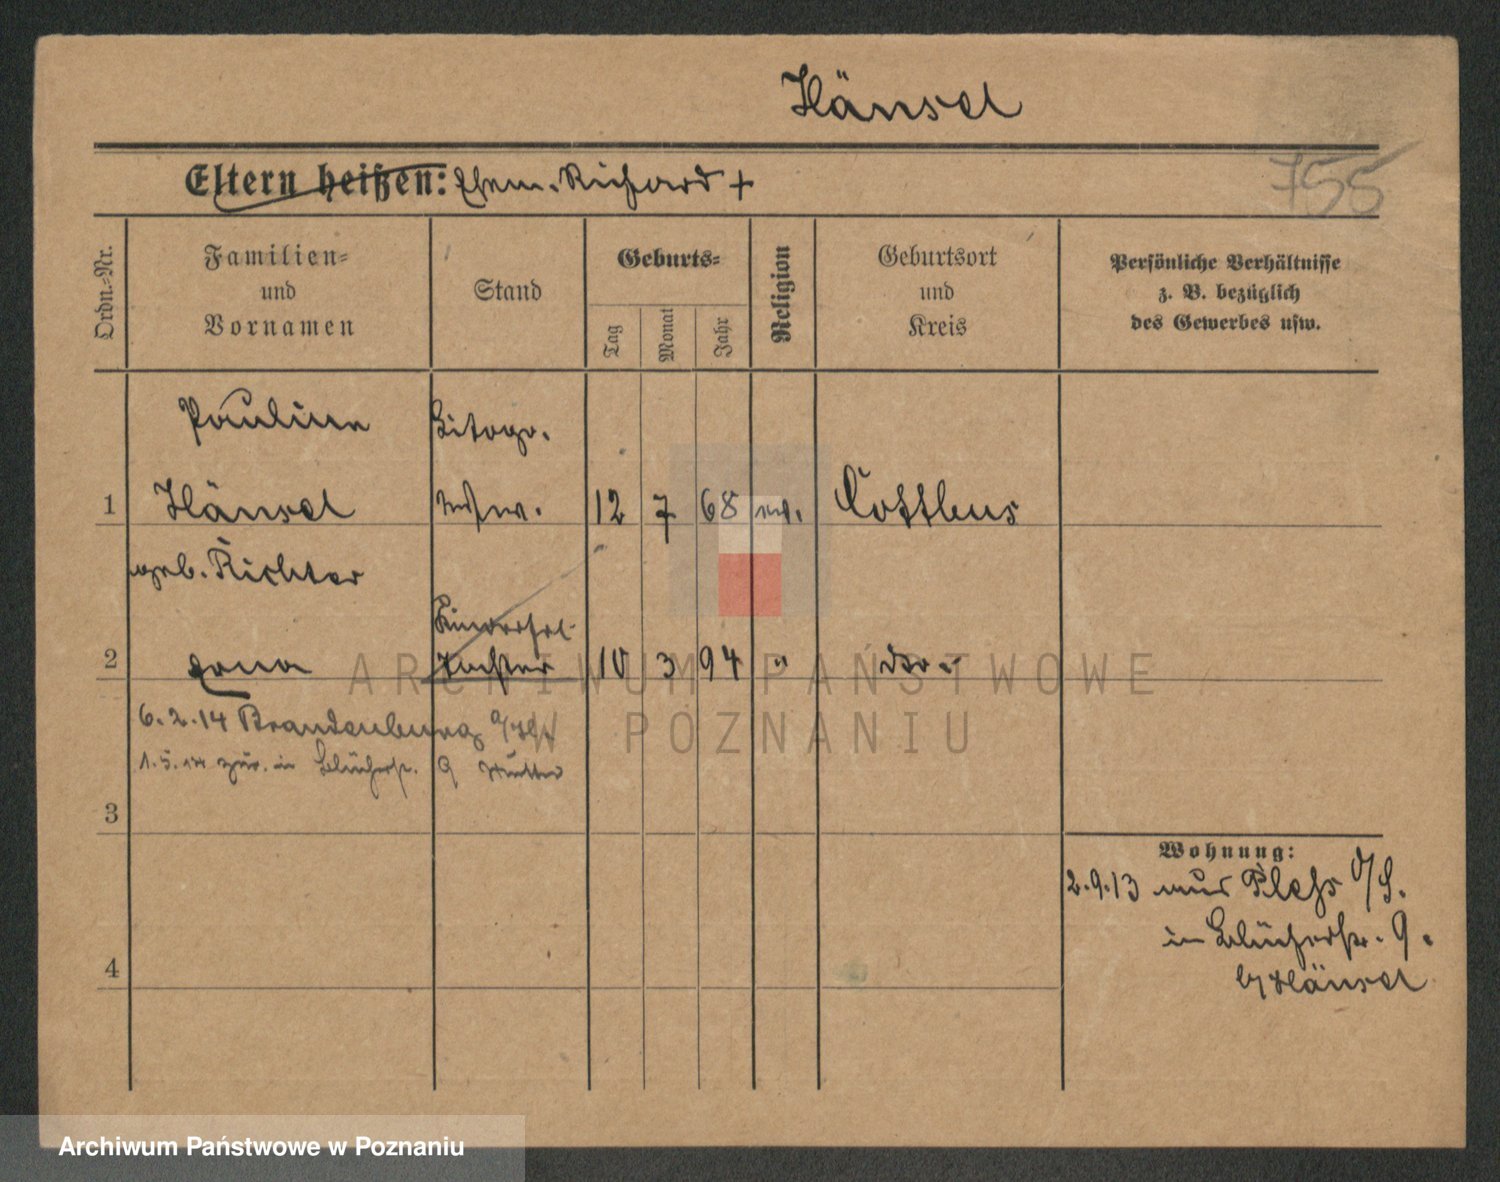 Hänsel
Eltern heißen: Ehem. Richard +
755
Ordn.-Nr.
Familien-
und
Vornamen
Stand
Geburts-
Tag
Monat
Jahr
Religion
Geburtsort
und
Kreis
Persönliche Verhältnisse
z. B. bezüglich
des Gewerbes usw.
Pauline
1 Hänsel Wwe. 12 7 68 ev. Cottbus
geb. Richter
2 Erna Tochter 10 3 94 " dto
6.2.14 Brandenburg a/H
1.5.14 zur. in Blücherstr. 9 Mutter
3
Wohnung:
2.9.13 aus Pless O/S.
in Blücherstr. 9.
b/ Hänsel
4
ARCHIWUM PAŃSTWOWE
W POZNANIU
Archiwum Państwowe w Poznaniu